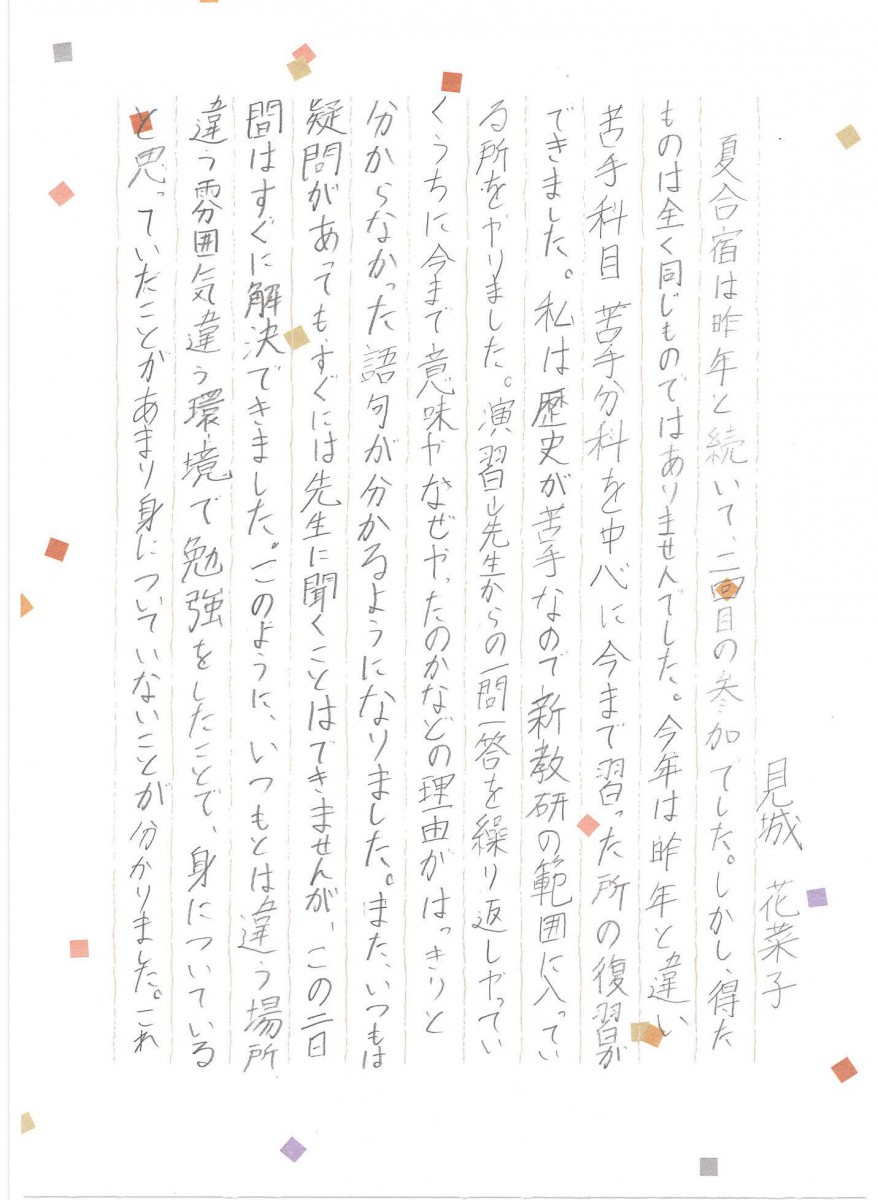 見城 花菜子
夏合宿は昨年と続いて、二回目の参加でした。しかし、得た
ものは全く同じものではありませんでした。今年は昨年と違い
苦手科目 苦手分科を中心に今まで習った所の復習が
できました。私は歴史が苦手なので新教研の範囲に入ってい
る所をやりました。演習し先生からの一問一答を繰り返しやってい
くうちに今まで意味やなぜやったのかなどの理由がはっきりと
分からなかった語句が分かるようになりました。また、いつもは
疑問があっても、すぐには先生に聞くことはできませんが、この二日
間はすぐに解決できました。このように、いつもとは違う場所
違う雰囲気違う環境で勉強をしたことで、身についている
と思っていたことがあまり身についていないことが分かりました。これ